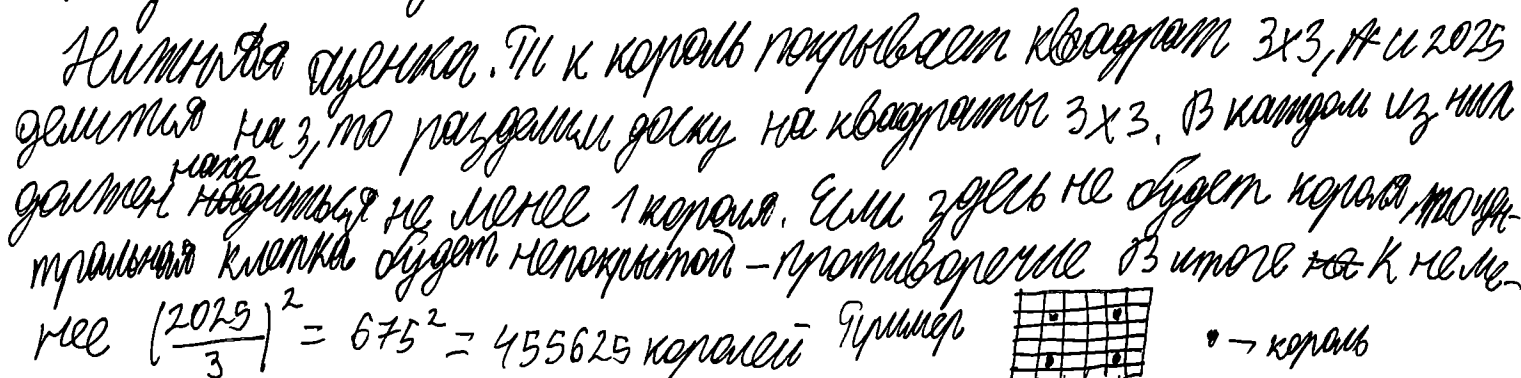 Нижняя оценка. Т к король покрывает квадрат 3х3, и 2025
делится на 3, то разделим доску на квадраты 3х3. В каждом из них
должен находиться не менее 1 короля. Если здесь не будет короля, то цен-
тральная клетка будет непокрытой – противоречие В итоге К не ме-
нее (2025/3)² = 675² = 455625 королей Пример • → король